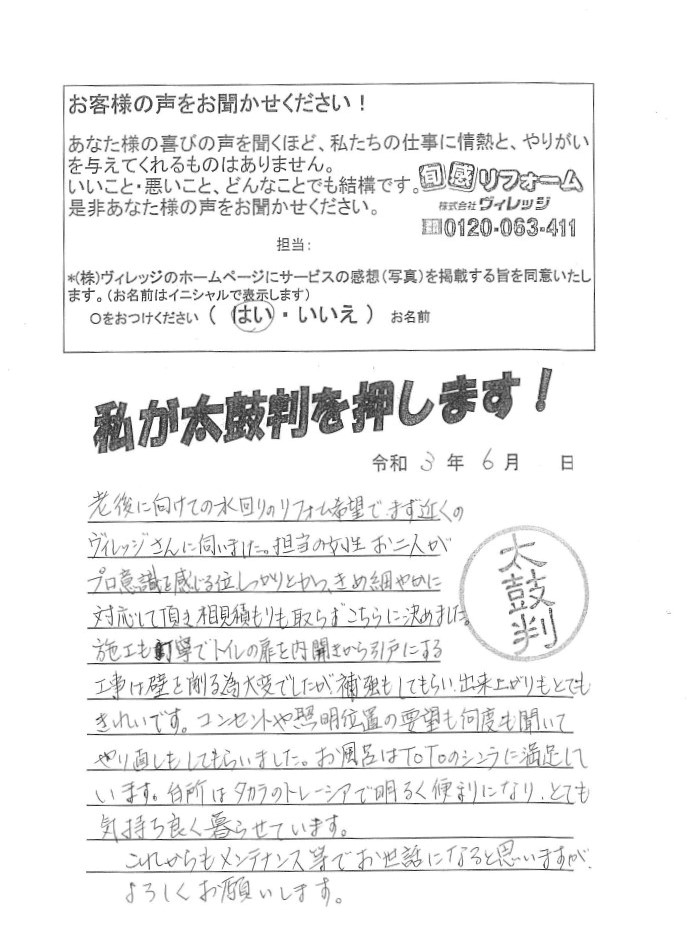 お客様の声をお聞かせください！
あなた様の喜びの声を聞くほど、私たちの仕事に情熱と、やりがい
を与えてくれるものはありません。
いいこと・悪いこと、どんなことでも結構です。
是非あなた様の声をお聞かせください。
旬感リフォーム
株式会社 ヴィレッジ
0120-063-411
担当：
*(株)ヴィレッジのホームページにサービスの感想(写真)を掲載する旨を同意いたし
ます。(お名前はイニシャルで表示します)
○をおつけください ( はい ・ いいえ ) お名前
私が太鼓判を押します！
令和 3 年 6 月 日
老後に向けての水回りのリフォーム希望でまず近くの
ヴィレッジさんに伺いました。担当の女性お二人が
プロ意識を感じる位しっかりとかつ、きめ細やかに
対応して頂き相見積もりも取らずこちらに決めました。
施工も丁寧でトイレの扉を内開きから引戸にする
工事は壁を削る為大変でしたが、補強もしてもらい、出来上がりもとても
きれいです。コンセントや照明位置の要望も何度も聞いて
やり直しもしてもらいました。お風呂はTOTOのシンラに満足して
います。台所はタカラのトレーシアで明るく便利になり、とても
気持ち良く暮らせています。
これからもメンテナンス等でお世話になると思いますが、
よろしくお願いします。
太鼓判